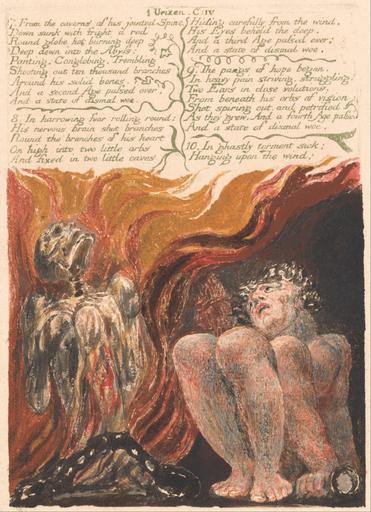 Urizen. C: IV
7. From the caverns of his jointed Spine,
Down sunk with fright a red
Round globe hot burning deep
Deep down into the Abyss:
Panting: Conglobing, Trembling
Shooting out ten thousand branches
Around his solid bones.
And a second Age passed over,
And a state of dismal woe.
8. In harrowing fear rolling round;
His nervous brain shot branches
Round the branches of his heart.
On high into two little orbs
And fixed in two little caves
Hiding carefully from the wind,
His Eyes beheld the deep,
And a third Age passed over:
And a state of dismal woe.
9. The pangs of hope began,
In heavy pain striving, struggling.
Two Ears in close volutions.
From beneath his orbs of vision
Shot spiring out and petrified
As they grew. And a fourth Age passed
And a state of dismal woe.
10. In ghastly torment sick;
Hanging upon the wind;